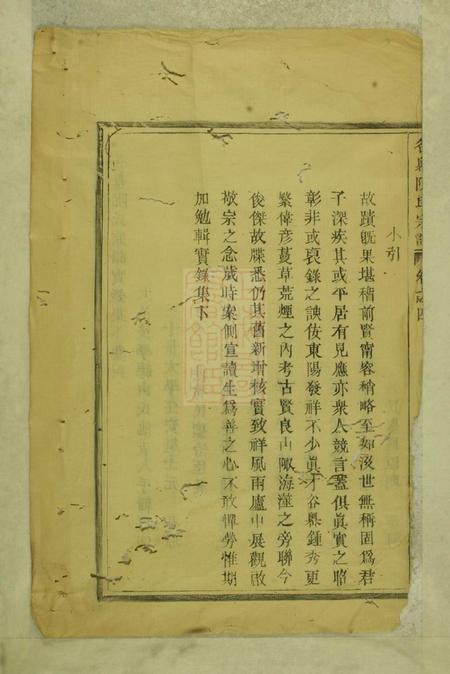 谷巖陳氏宗譜 卷之四
小引
故蹟既果堪稽前賢甯容稍略至如沒世無稱固爲君
子深疾其或平居有見應亦衆人競言蓋俱眞實之昭
彰非或裒錄之諛伎東陽發祥不少眞才谷巖鍾秀更
繁偉彥蔓草荒煙之內考古賢良山陬海澨之旁聯今
俊傑故牒悉仍其舊新增核實致祥風雨廬中展觀啟
敬宗之念歲時案側宣讀生爲善之心不敢憚勞惟期
加勉輯實錄集下